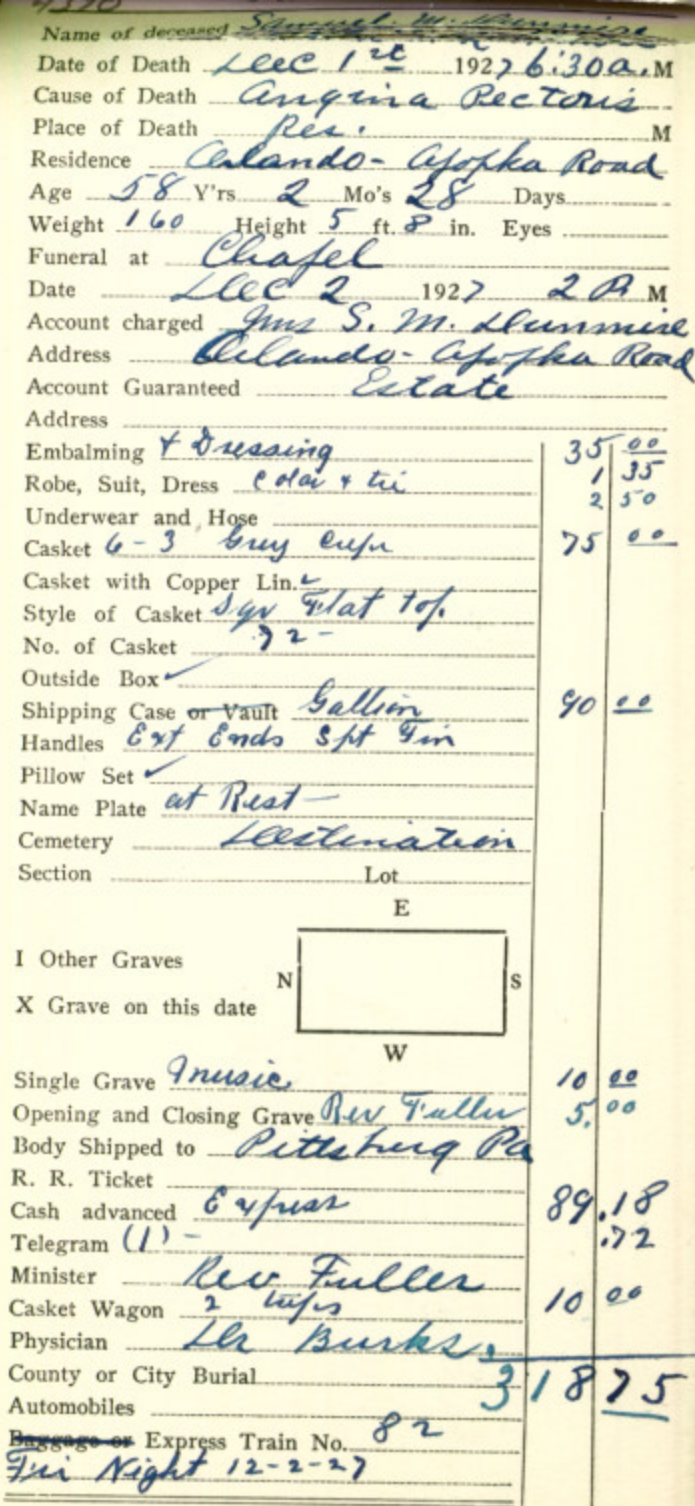 4370
Name of deceased Samuel. M. Dunmire
Date of Death Dec 1st 1927 6:30 a. M
Cause of Death Angina Pectoris
Place of Death Res. M
Residence Orlando - Apopka Road
Age 58 Y'rs 2 Mo's 28 Days
Weight 160 Height 5 ft. 8 in. Eyes
Funeral at Chapel
Date Dec 2 1927 2 P M
Account charged Mrs S. M. Dunmire
Address Orlando - Apopka Road
Account Guaranteed Estate
Address
Embalming & Dressing 35 00
Robe, Suit, Dress Colar & tie 1 35
Underwear and Hose 2 50
Casket 6 - 3 Grey Crepe 75 00
Casket with Copper Lin. ✓
Style of Casket Sqr Flat Top.
No. of Casket 72 -
Outside Box ✓
Shipping Case or Vault Gallion 90 00
Handles Ext Ends Spt Fin
Pillow Set ✓
Name Plate at Rest -
Cemetery Destination
Section Lot
E
I Other Graves
N S
X Grave on this date
W
Single Grave Music 10 00
Opening and Closing Grave Rev Fuller 5. 00
Body Shipped to Pittsburg Pa
R. R. Ticket
Cash advanced Express 89.18
Telegram (1) - .72
Minister Rev Fuller
Casket Wagon 2 trips 10 00
Physician Dr Burks.
County or City Burial 318 75
Automobiles
Baggage or Express Train No. 82
Fri Night 12-2-27